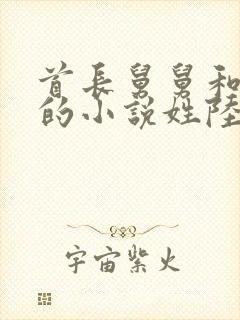 首長舅舅和
的小說姓陸
宇宙紫火